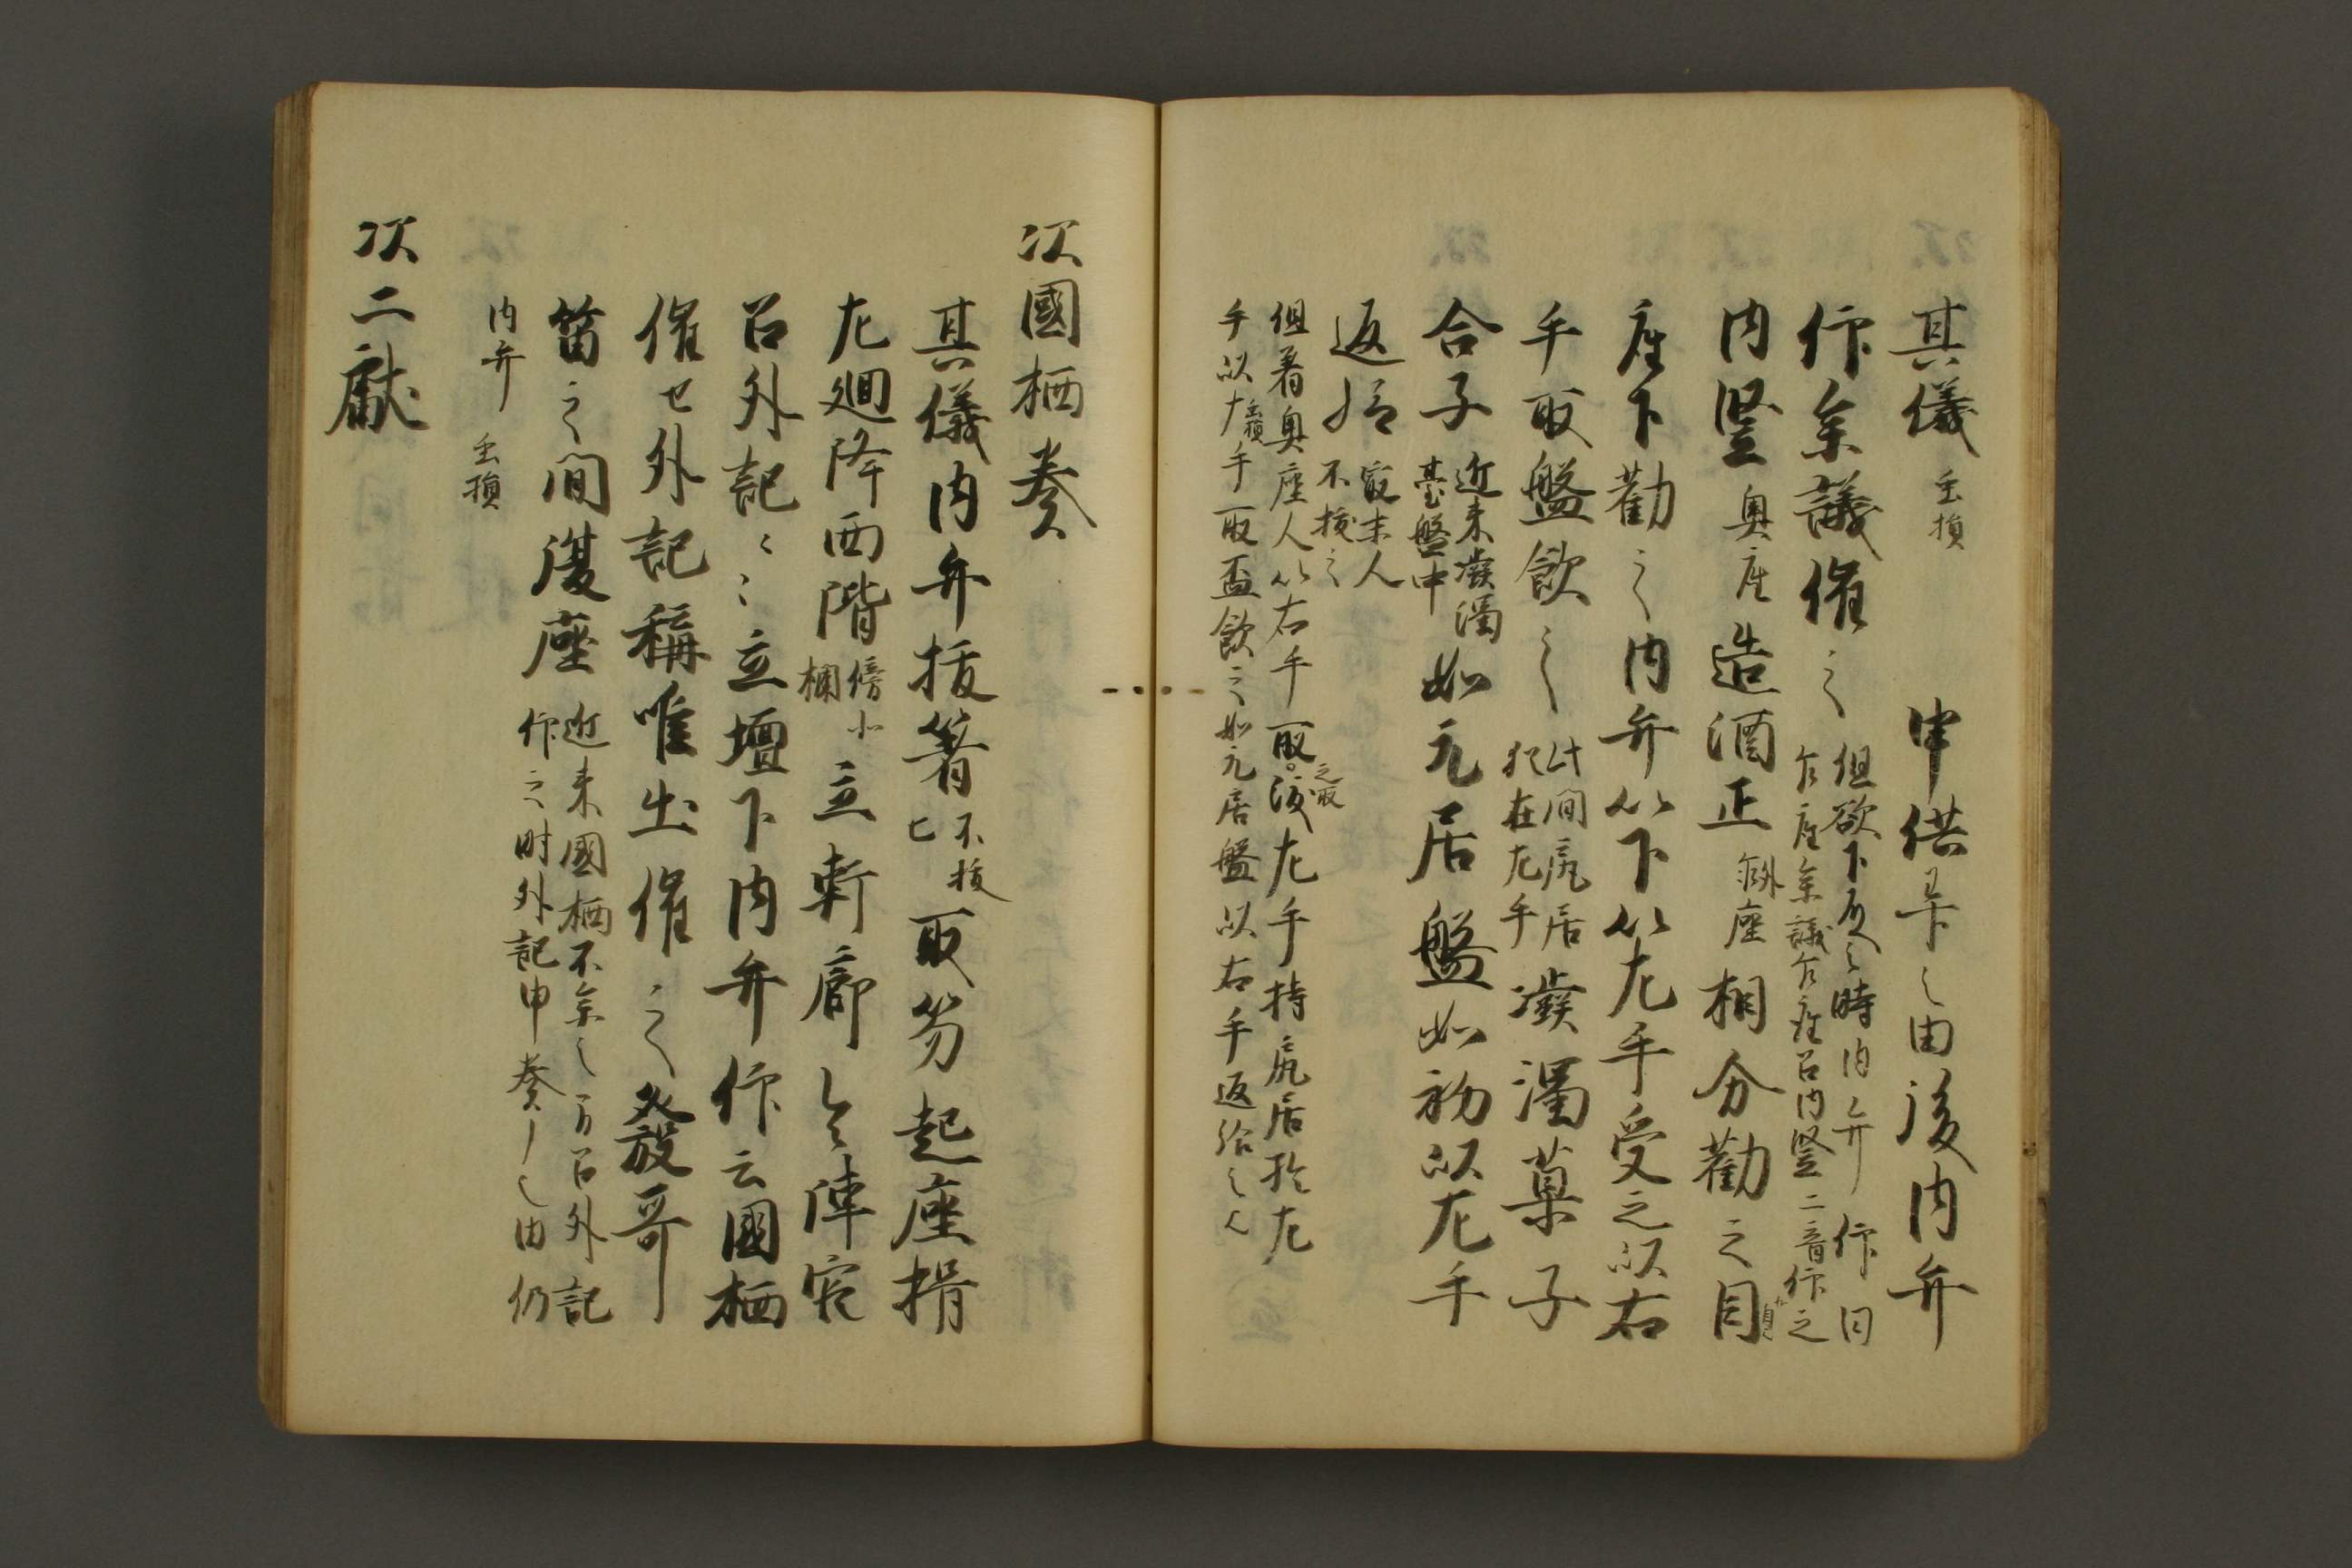 其儀 虫損 申供畢之由後内弁
仰参議催之 但欲下殿之時内弁仰日
召内竪二音仰之
内竪 奥座 造酒正 端座 相分勧之目
座下勧之内弁以下以左手受之以右
手取盤飲之 此間尻居
猶在左手 濃濁菓子
合子 近来濃濁
臺盤中 如元居盤如初以左手
返給 最末人
不擬之
但着奥座人以右手取之取渡左手持尻居於左
手以 虫損 手取盃飲之如元居盤以右手返給之
次國栖奏
其儀内弁抜箸 不抜
匕 取笏起座揖
左廻降西階 傍小
欄 立軒廊 陣官
召外記〻〻立壇下内弁仰云國栖
催セ外記稱唯出催之發哥
笛之間復座 近来國栖不参之間召外記
仰之時外記申奏之由仍
内弁 虫損
次二献